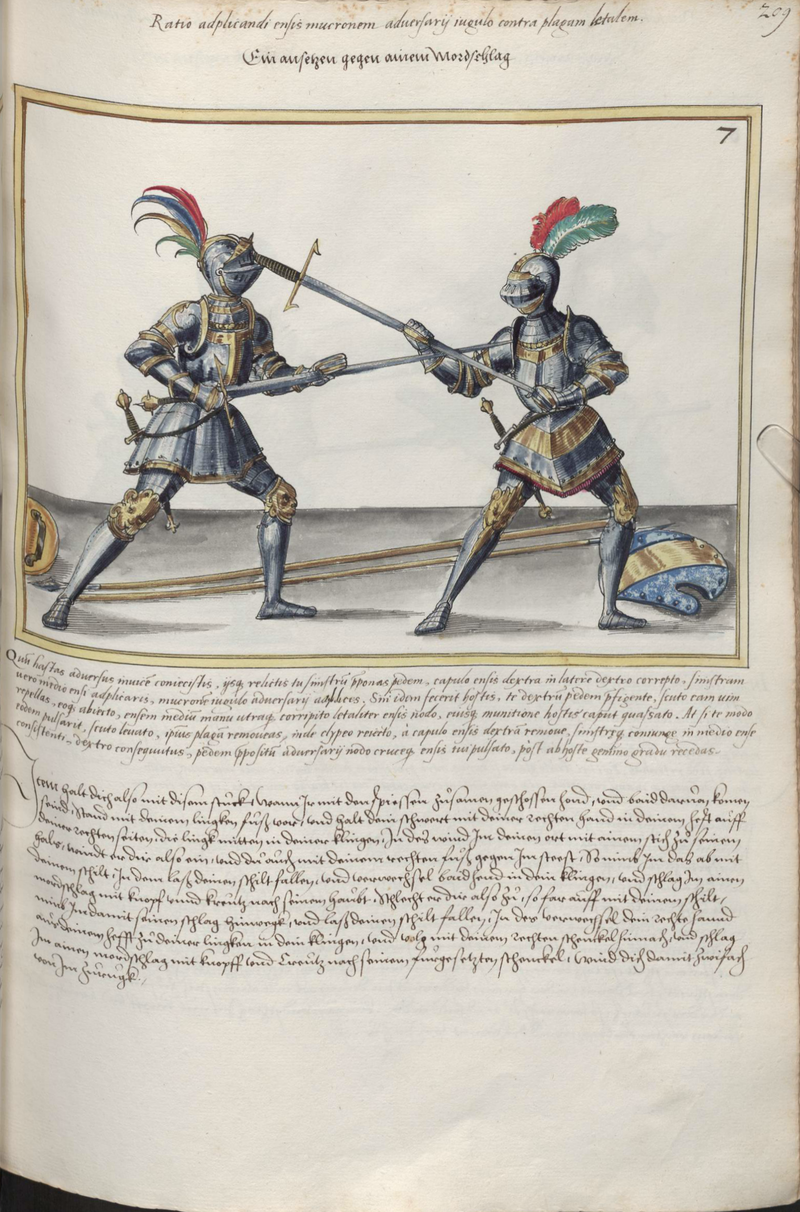 209
Ratio adplicandi ensis mucronem adversarij iugulo contra plagam letalem.
Ein ansetzen gegen ainem Mordschlag
7
Quū hastas adversus invicē coniecistis, ijsq; relictis tu sinistrū pponas pedem, capulo ensis dextra in latere dextro correpto, sinistram
vero medio ensi adplicaris, mucronē iugulo adversarij adplices. Sin idem fecerit hostis, te dextrū pedem pfigente, scuto eam vim
repellas, eoq; abiecto, ensem mediū manu utraq; corripito letaliter ensis nodo, eiusq; munitione hostis caput quassato. At si te modo
eodem pulsarit, scuto levato, ipsius plagā removeas, inde clypeo reiecto, à capulo ensis dextrā remove, sinistręq; coniunge in medio ense
consistenti, dextro consequutus, pedem ppositū adversarij nodo cruceq; ensis tui pulsato, post ab hoste gemino gradu recedas.
Item halt dich also mit disem stuckh, wann Ir mit den spiessen zusamen geschossen hond, vnd baid darvon komen
seind, Stand mit deinem lingken fuß vor, vnd halt dein schwert mit deiner rechten hand in deinem hefft auff
deiner rechten seiten, die lingk mitten in deiner klingen, In des wind Im deinen ort mit ainem stich zu seinem
hals, windt er dir also ein, vnd du auch mit deinem rechten fuß gegen Im steest, So nimb Im das ab mit
deinem schilt, In dem laß deinen schilt fallen, vnd verwechsel baid hend in dein klingen, vnd schlag Im ainen
mordschlag mit knopf vnd kreutz nach seinem haubt, Schlecht er dir also zu, so far auff mit deinem schilt,
nim Im damit seinen schlag hinwegk, vnd laß deinen schilt fallen, In des verwechsel dein rechte hannd
aus deinem hefft zu deiner lingken in dein klingen, vnd volg mit deinem rechten schenckel hinnach, vnd schlag
Im ainen mordschlag mit knopff vnd Creutz nach seinem fürgesetzten schenckel, wind dich damit zwifach
von Im zurugk.